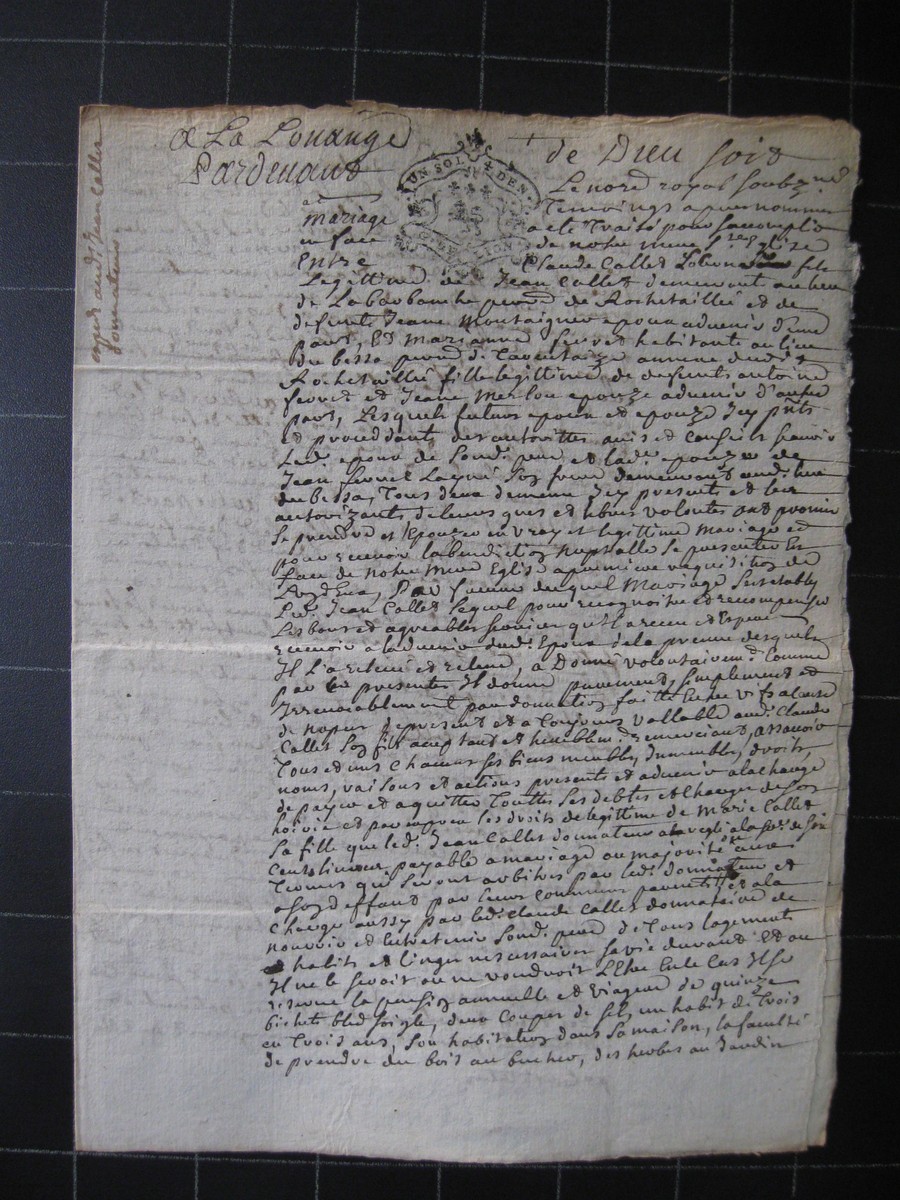 A La Louange de Dieu soit
Pardevant Le nore royal soubz.né
UN SOL 4 DEN.
G. LYON
et temoings apres nommes
mariage a este Traité pour saccomplir
en face de notre mere Ste Eglise
Entre Claude Callet Laboureur fils
Legittime de Jean Callet demeurant au lieu
de La barbanche parr.e de Rochetaillé et de
defunte Jeane Montaigner epoux advenir d'une
part, Et Marianne ferret habitante au lieu
du bessa parr.e de Tarentaize annexe dudit
Rochetaillé fille legittime de defunts antoine
ferret et Jeane Merlou epouze advenir d'autre
part, Lesquels futurs epoux et epouze Icy pnts
et proceddants des autorittes avis et Conseils sçavoir
Led. epoux de Sond. pere et lad. epouze de
Jean ferret Layné Son frere demeurant aud. lieu
du bessa, Tous deux Icy presents et les
autorizants de leurs gres et libres volontes ont promis
Se prendre et Epouzer en vray et legittime Mariage et
pour recevoir la benediction nuptialle Se presenter En
face de notre Mere Eglise a premiere requisition de
Lung deux, Par faveur duquel Mariage Sest etably
Led. Jean Callet Lequel pour recognoitre et recompenser
Les bons et agreables services qu'il a receu et Espere
recevoir a Ladvenir dud. Epoux de la preuve desquels
Il l'a relevé et releve, a Donné volontairem.t Comme
par les presentes Il donne purement, simplement et
Irrevocablement par donnation faitte Entre vifs a Cause
de nopces des present et a toujours vallable aud. Claude
Callet Son fils acceptant et humblem.t remerciant, assavoir
Tous et uns Chacuns ses biens meubles, Immeubles, droits,
noms, raisons et actions presents et advenir a la charge
de payer et aquitter Touttes Ses debtes et Charges de Son
hoirie et par exprès les droits de legittime de Marie Callet
Sa fille que led. Jean Callet donnateur a reglé a la so.e de Six
Cents livres payable a mariage ou majorité ou aux
Termes qui seront arbitres par led. donnateur et
a son deffaut par leurs Communs parents Et a la
Charge aussy par led. Claude Callet donnataire de
nourrir et Entretenir Sond. pere de Tous Logements
habits et linges necessaires sa vie durant Et ou
Il ne le feroit ou ne voudroit L'Etre En le Cas Il se
reserve la pension annuelle et viagere de quinze
bichets bled seigle, deux Coupes de sel, un habit de Trois
en Trois ans, Son habitation dans Sa maison, la faculté
de prendre du bois au bucher, des herbes au Jardin
expedié aud. Jean Callet
donnateur